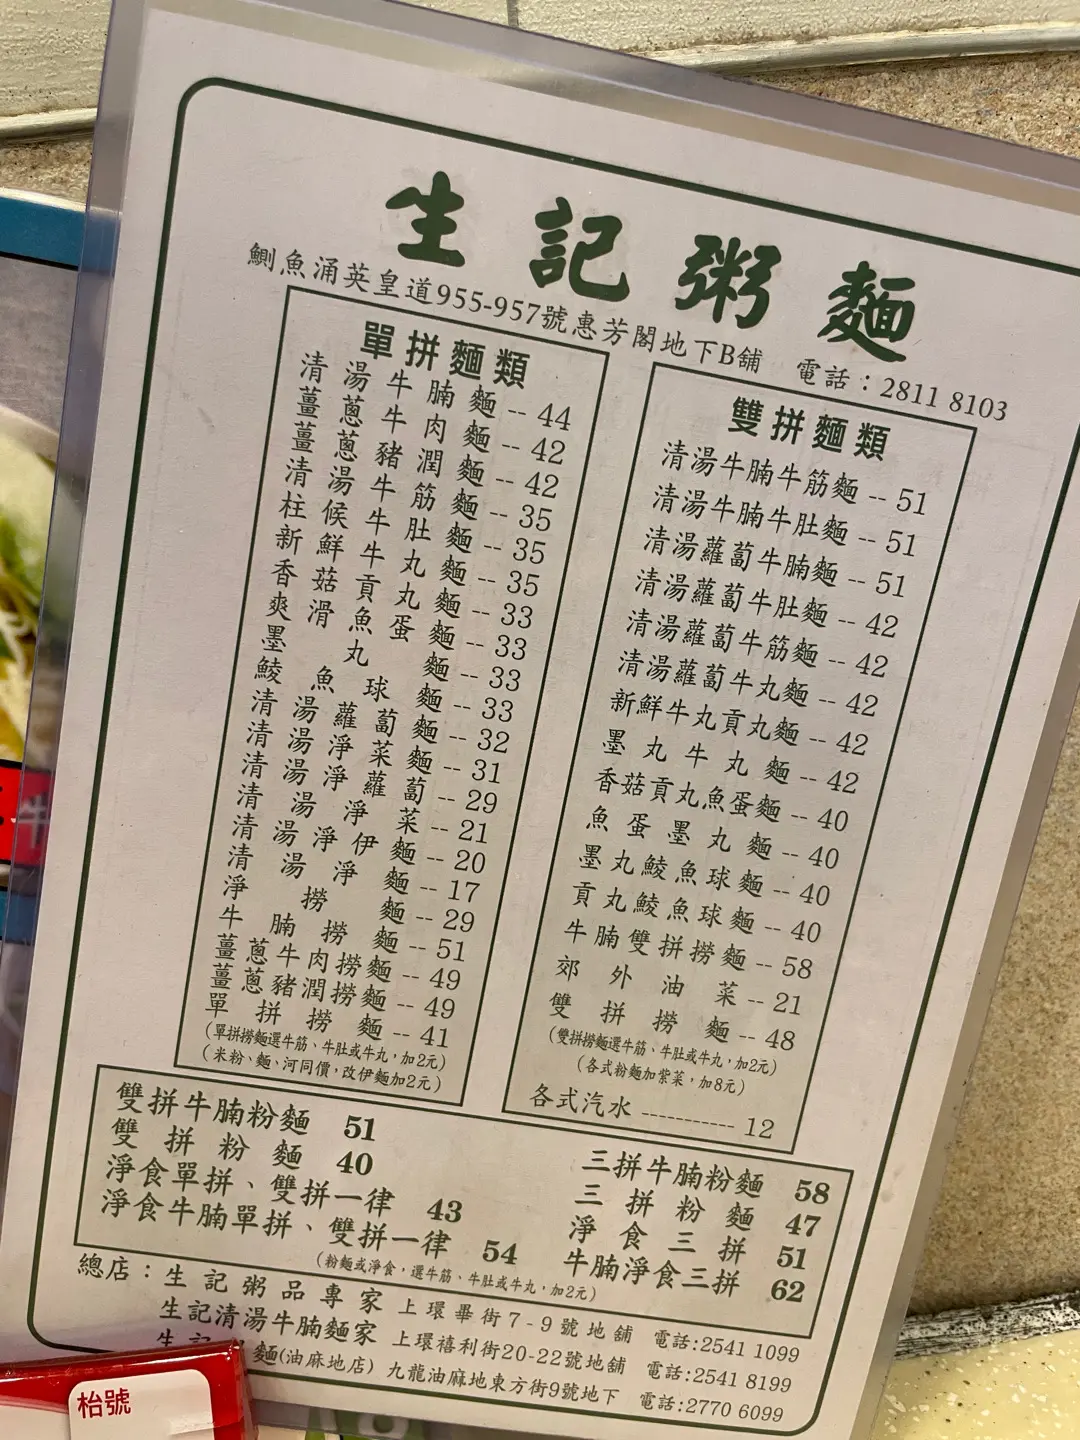 生記粥麵
鰂魚涌英皇道955-957號惠芳閣地下B舖 電話：2811 8103
單拼麵類
清湯牛腩麵 -- 44
薑蔥牛肉麵 -- 42
薑蔥豬潤麵 -- 42
清湯牛筋麵 -- 35
柱候牛肚麵 -- 35
新鮮牛丸麵 -- 35
香菇貢丸麵 -- 33
爽滑魚蛋麵 -- 33
墨丸麵 -- 33
鯪魚球麵 -- 33
清湯蘿蔔麵 -- 32
清湯淨菜麵 -- 31
清湯淨蘿蔔 -- 29
清湯淨菜 -- 21
清湯淨伊麵 -- 20
清湯淨麵 -- 17
淨撈麵 -- 29
牛腩撈麵 -- 51
薑蔥牛肉撈麵 -- 49
薑蔥豬潤撈麵 -- 49
單拼撈麵 -- 41
(單拼撈麵選牛筋、牛肚或牛丸，加2元)
(米粉、麵、河同價，改伊麵加2元)
雙拼麵類
清湯牛腩牛筋麵 -- 51
清湯牛腩牛肚麵 -- 51
清湯蘿蔔牛腩麵 -- 51
清湯蘿蔔牛肚麵 -- 42
清湯蘿蔔牛筋麵 -- 42
清湯蘿蔔牛丸麵 -- 42
新鮮牛丸貢丸麵 -- 42
墨丸牛丸麵 -- 42
香菇貢丸魚蛋麵 -- 40
魚蛋墨丸麵 -- 40
墨丸鯪魚球麵 -- 40
貢丸鯪魚球麵 -- 40
牛腩雙拼撈麵 -- 58
郊外油菜 -- 21
雙拼撈麵 -- 48
(雙拼撈麵選牛筋、牛肚或牛丸，加2元)
(各式粉麵加紫菜，加8元)
各式汽水 ----------- 12
雙拼牛腩粉麵 51
雙拼粉麵 40
淨食單拼、雙拼一律 43
淨食牛腩單拼、雙拼一律 54
三拼牛腩粉麵 58
三拼粉麵 47
淨食三拼 51
牛腩淨食三拼 62
(粉麵或淨食，選牛筋、牛肚或牛丸，加2元)
總店：生記粥品專家 上環畢街7-9號地舖 電話:2541 1099
生記清湯牛腩麵家 上環禧利街20-22號地舖 電話:2541 8199
生記 麵(油麻地店) 九龍油麻地東方街9號地下 電話:2770 6099
枱號
牛